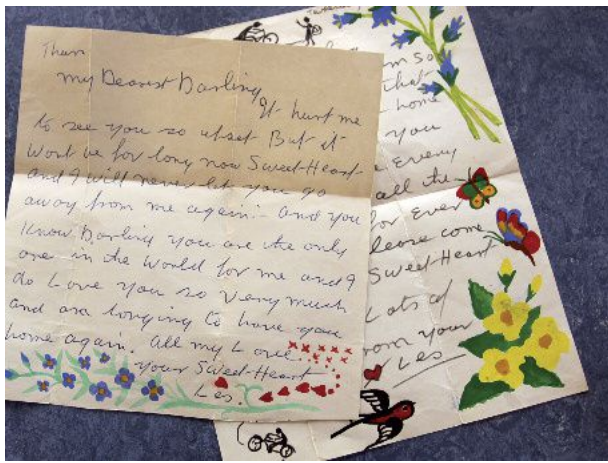 Thurs
My Dearest Darling
It hurt me
to see you so upset But it
wont be for long now SweetHeart
and I will never let you go
away from me again. and you
Know Darling you are the only
one in the World for me and I
do Love you so very much
and am longing to have you
home again. All my Love. xxxxx
xxxxx
your SweetHeart
Les.
am so
that
home
you
Every
all the
for Ever
Please come
SweetHeart
Lots of
from your
Les